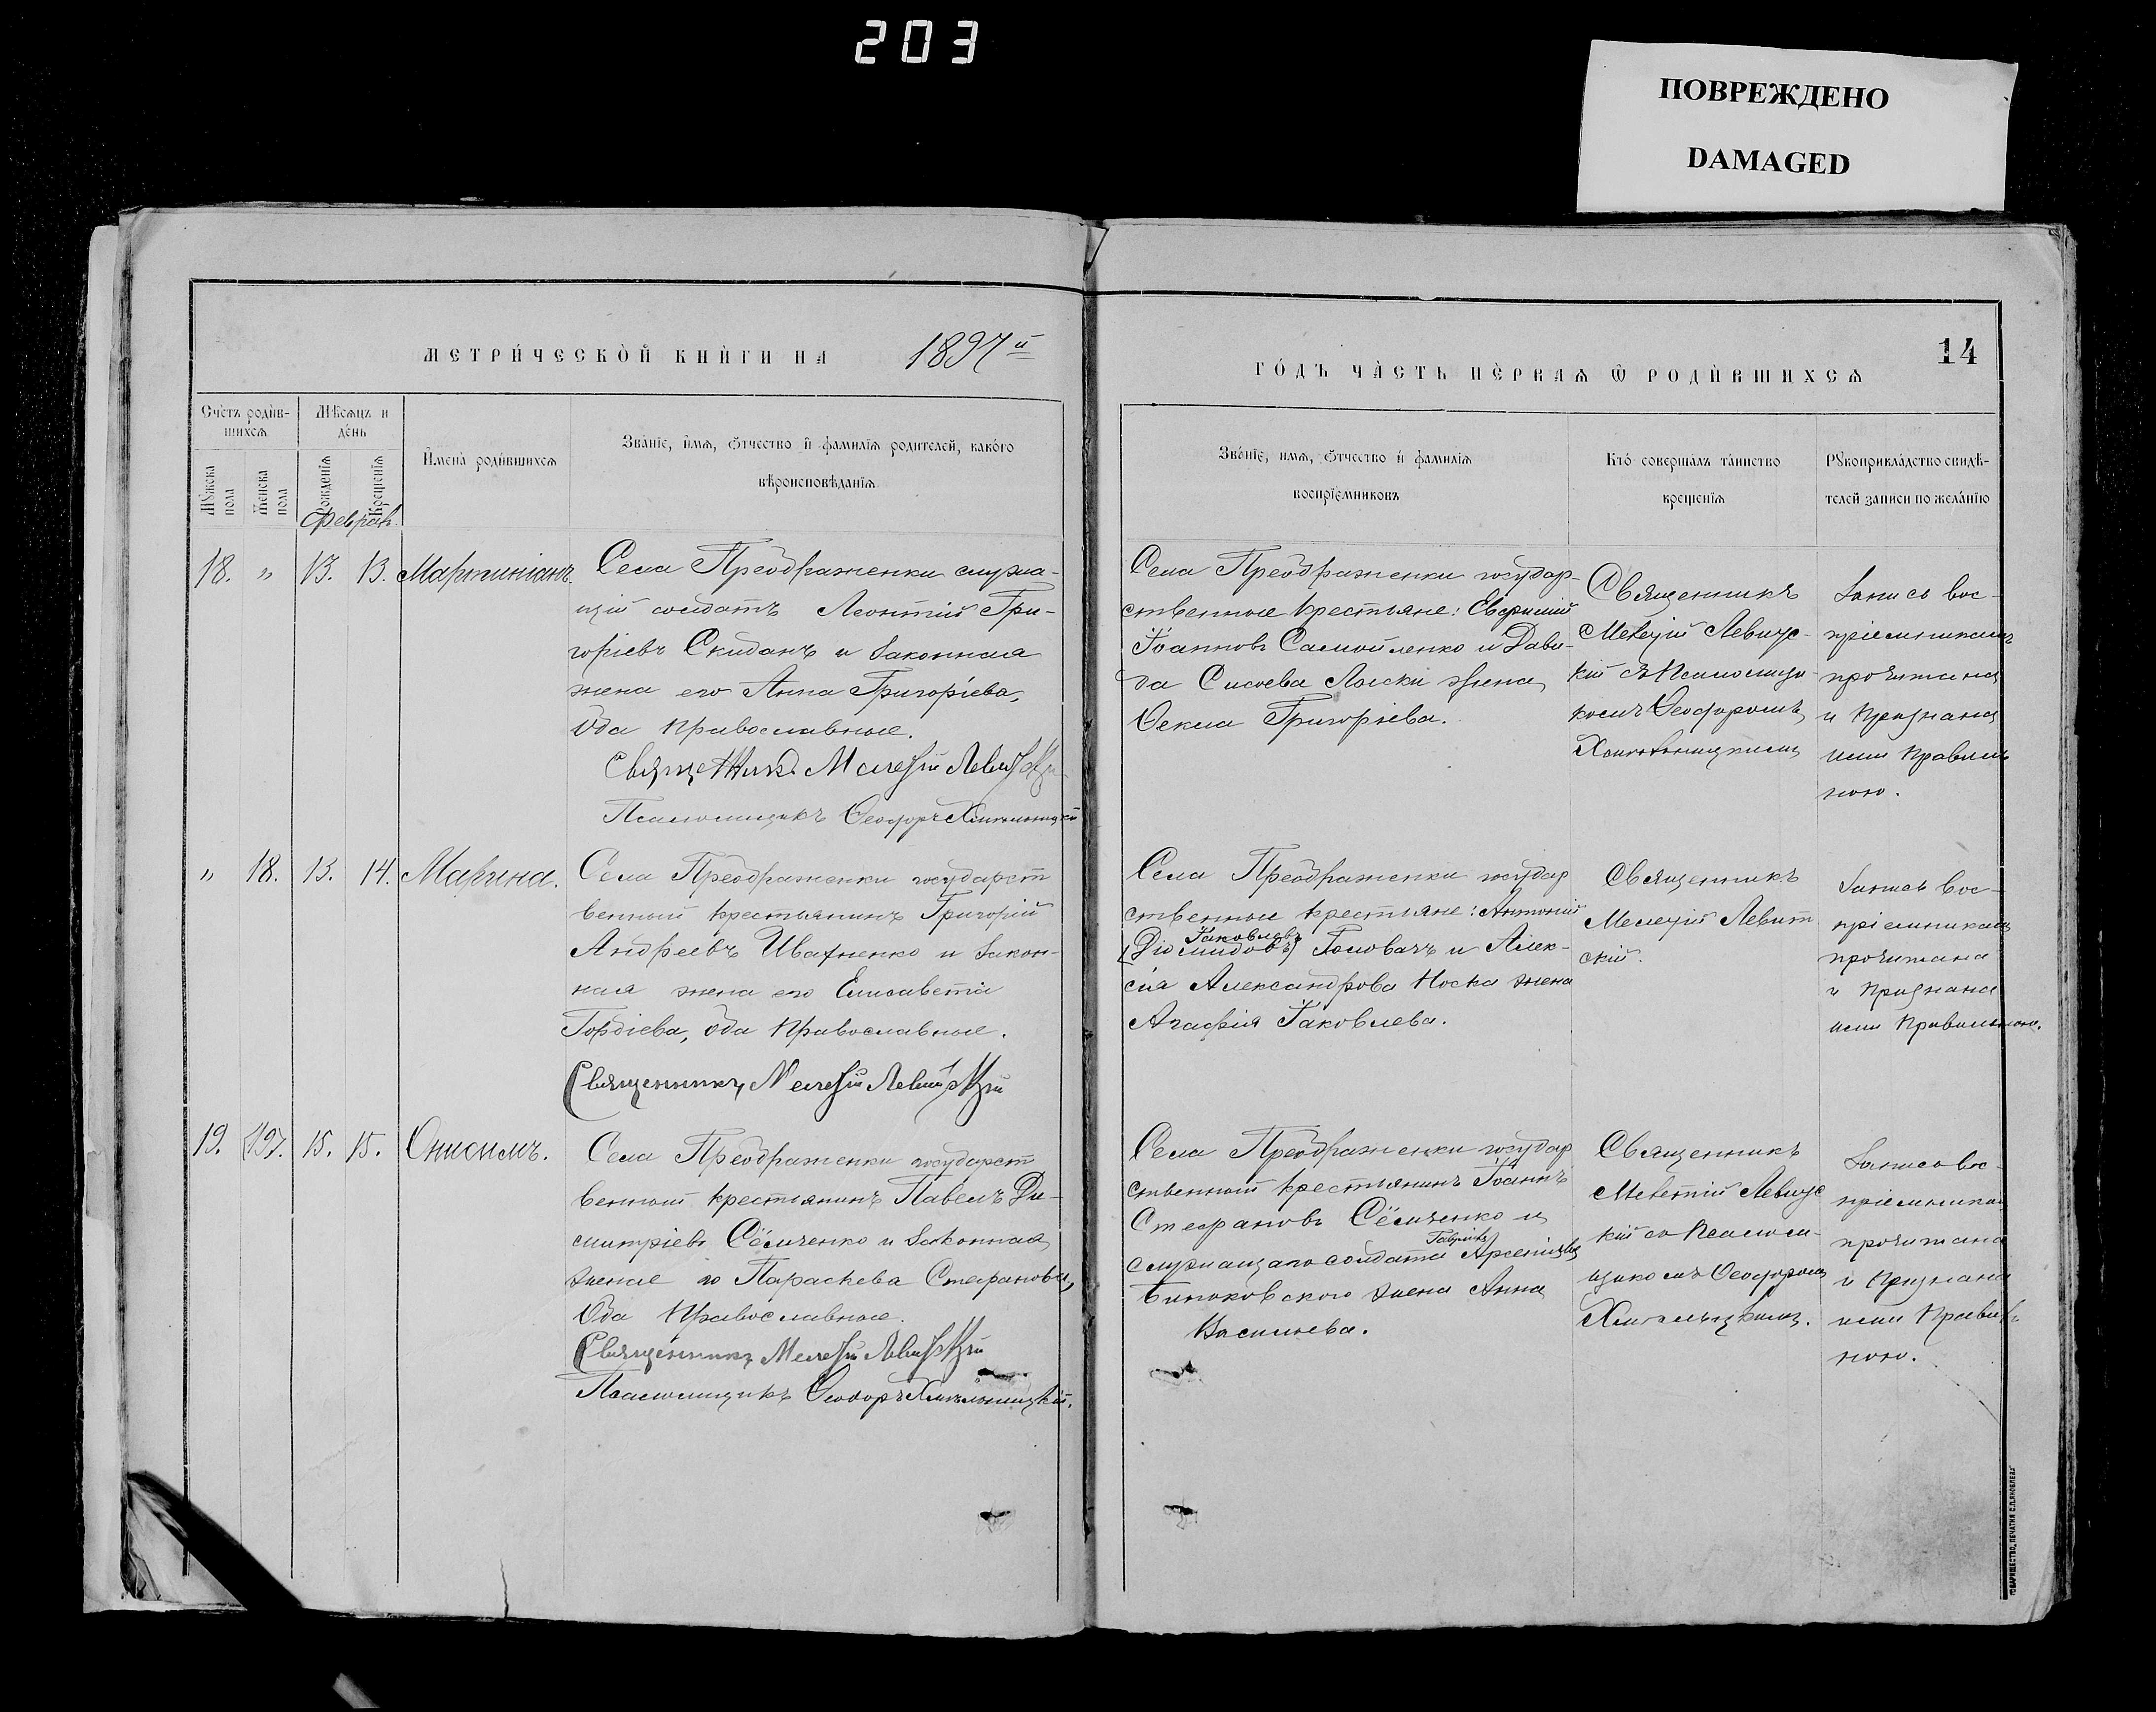 203
ПОВРЕЖДЕНО
DAMAGED
МЕТРИ́ЧЕСКОЙ КНИ́ГИ НА 1897й
ГО́ДЪ ЧА́СТЬ ПЕ́РВАѦ Ѡ РОДИ́ВШИХСѦ
14
Сче́тъ роди́в-
шихсѧ
Мѣ́сѧцъ и
де́нь
Мꙋ́жска
пола
Же́нска
пола
Рожде́нїѧ
Креще́нїѧ
И҆мена̀ роди́вшихсѧ
Зва́нїе, и҆́мѧ, ѻ҆́тчество и҆ фамилїѧ родителей, како́го
вѣроисповѣ́данїѧ
Зва́нїе, имѧ, ѻ҆́тчество и҆ фамилїѧ
воспрїе́мниковъ
Кто̀ соверша́лъ та́инство
креще́нїѧ
Рꙋкоприкла́дство свидѣ́-
телей записи по жела́нїю
Феврал.
18. " 13. 13. Мартиніанъ.
Села Преображенки служа-
щій солдатъ Леонтій Гри-
горіевъ Скиданъ и законная
жена его Анна Григоріева,
Оба православные.
Священникъ Мелетій Левитскій
Псаломщикъ Ѳеодоръ Хмельницкій
Села Преображенки государ-
ственные крестьяне: Евфимій
Іоанновъ Самойленко и Дави-
да Сисоева Лоски жена
Ѳекла Григоріева.
Священникъ
Мелетій Левитс-
кій съ Псаломщи-
комъ Ѳеодоромъ
Хмельницкимъ
Запись вос-
пріемникамъ
прочитана
и признана
ими правиль
ною.
" 18. 13. 14. Марина.
Села Преображенки государст
венный крестьянинъ Григорій
Андреевъ Ивахненко и закон-
ная жена его Елисавета
Гордіева, оба православные.
Священникъ Мелетій Левитскій
Села Преображенки государ
ственные крестьяне: Антоній
Іаковлевъ
(Діомидовъ) Головачъ и Алек-
сія Александрова Носка жена
Агафія Іаковлева.
Священникъ
Мелетій Левит
скій.
Запись вос-
пріемникамъ
прочитана
и признана
ими правильною.
19. 15. 15. Онисимъ.
Села Преображенки государст
венный крестьянинъ Павелъ Ди-
митріевъ Сёмченко и законная
жена его Параскева Стефанова,
Оба православные.
Священникъ Мелетій Левитскій
Псаломщикъ Ѳеодоръ Хмельницкій.
Села Преображенки государ
ственный крестьянинъ Іоаннъ
Стефановъ Сёмченко и
служащаго солдата Арсенія
жена Анна
Васильева.
Священникъ
Мелетій Левитс
кій со Псаломъ-
щикомъ Ѳеодоромъ
Хмельницкимъ.
Запись вос-
пріемникам
прочитана
и признана
ими правиль
ною.